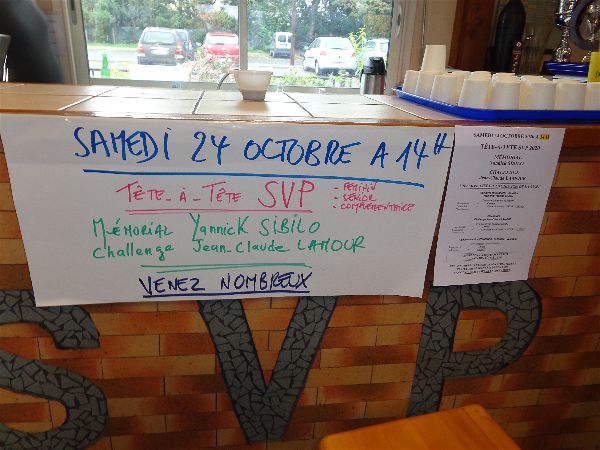 SAMEDI 24 OCTOBRE A 14H
TÊTE-À-TÊTE SVP
- FÉMININ
- SENIOR
- COMPLÉMENTAIRE
MÉMORIAL YANNICK SIBILO
Challenge Jean-Claude LAMOUR
VENEZ NOMBREUX
SAMEDI 24 OCTOBRE A 14 H
TÊTE-A-TETE SVP 2020
MÉMORIAL
Yannick SIBILO
CHALLENGE
Jean-Claude LAMOUR
SVP